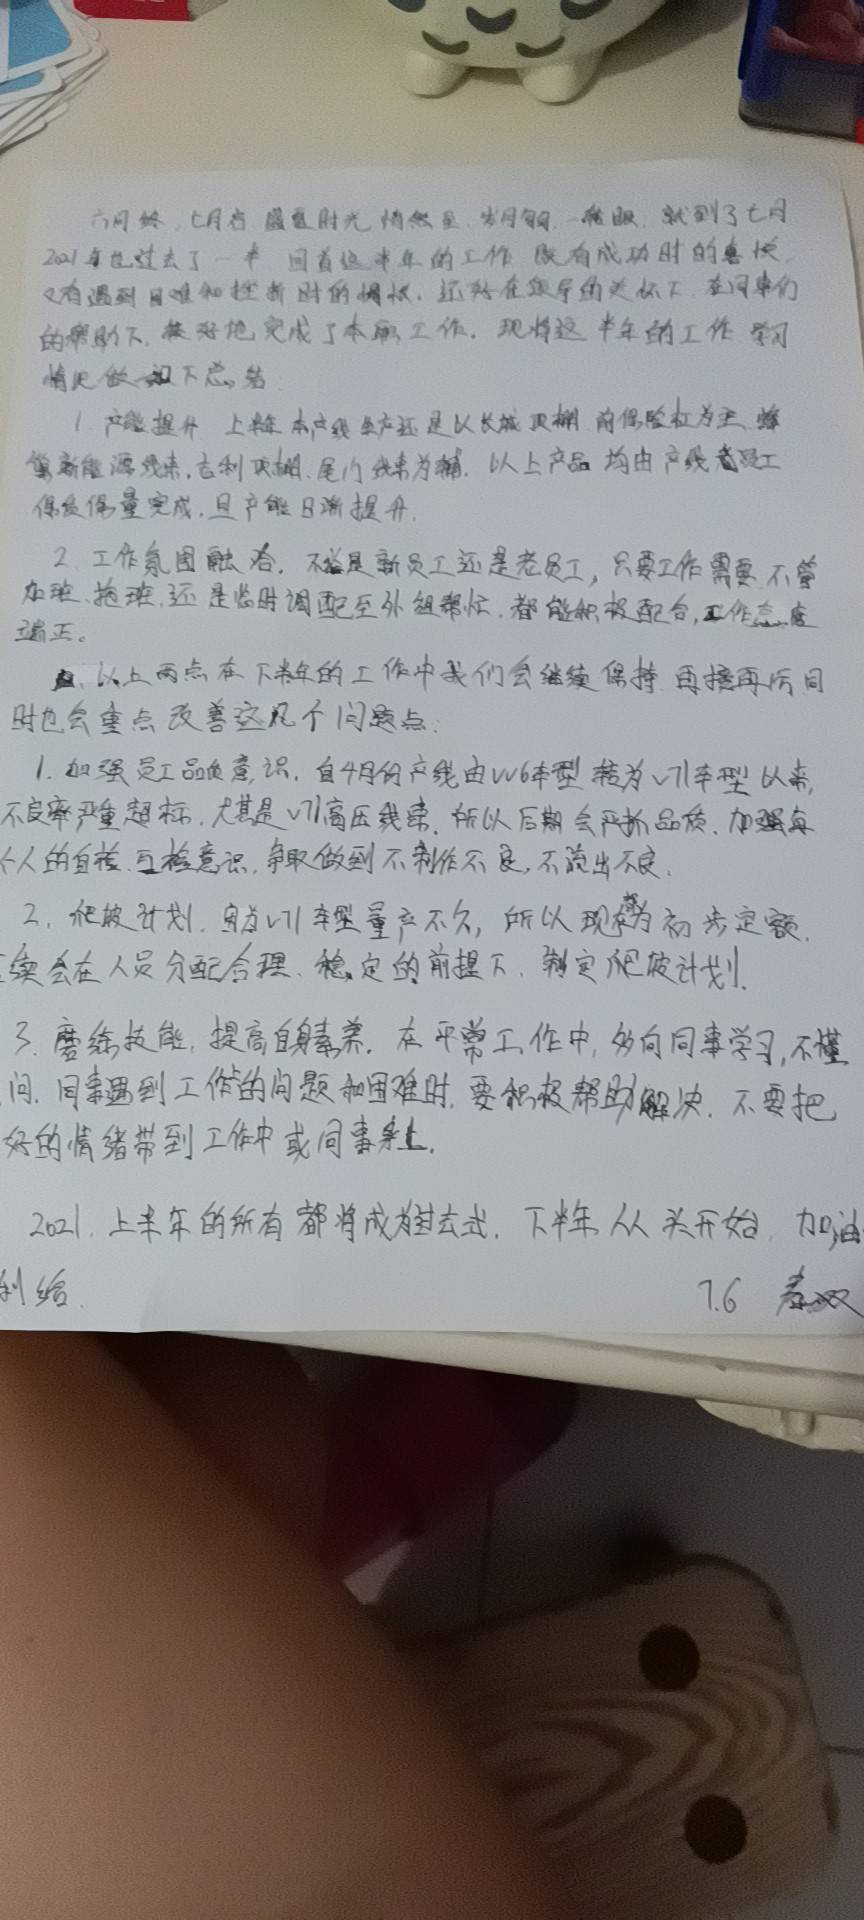 六月终,七月启 盛夏时光 悄然至.岁月匆匆.一转眼.就到了七月
2021年已过去了一半 回首这半年的工作 既有成功时的喜悦.
又有遇到困难和挫折时的惆怅.还好在领导的关怀下.在同事们
的帮助下,较好地完成了本职工作.现将这半年的工作学习
情况做如下总结:
1.产能提升 上半年本产线生产还是以长城顶棚.前保险杠为主.蜂
巢新能源线束,吉利顶棚.尾门线束为辅.以上产品均由产线员工
保质保量完成.且产能日渐提升.
2.工作氛围融洽.不论是新员工还是老员工,只要工作需要.不管
加班.拖班.还是临时调配至外组帮忙.都能积极配合,工作态度
端正。
以上两点在下半年的工作中我们会继续保持.再接再厉同
时也会重点改善这几个问题点:
1.加强员工品质意识.自4月份产线由VV6车型转为V71车型以来,
不良率严重超标.尤其是V71高压线束.所以后期会严抓品质.加强每
个人的自检.互检意识.争取做到不制作不良,不流出不良.
2.爬坡计划.因为V71车型量产不久,所以现在为初步定额.
续会在人员分配合理.稳定的前提下.制定爬坡计划.
3.磨练技能,提高自身素养.在平常工作中,多向同事学习,不懂
问.同事遇到工作的问题和困难时.要积极帮助解决.不要把
好的情绪带到工作中或同事身上.
2021.上半年的所有都将成为过去式.下半年从头开始.加油
利给.
7.6 春双